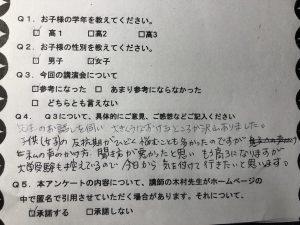 Q1. お子様の学年を教えてください。
☑高1 □高2 □高3
Q2. お子様の性別を教えてください。
□男子 ☑女子
Q3. 今回の講演会について
☑参考になった □あまり参考にならなかった
□どちらとも言えない
Q4. Q3について、具体的にご意見、ご感想などご記入ください
お話しを伺い ところが沢山ありました。
子供(女子)の反抗期がひどく悩むことも多かったのですが
私の声のかけ方、聞き方が悪かったと思い もう高3になりますが
大学受験も控えているので 今日から気を付けて行きたいと思います。
Q5. 本アンケートの内容について、講師の木村先生がホームページの
中で匿名で引用させていただく場合があります。それについて、
☑承諾する □承諾しない